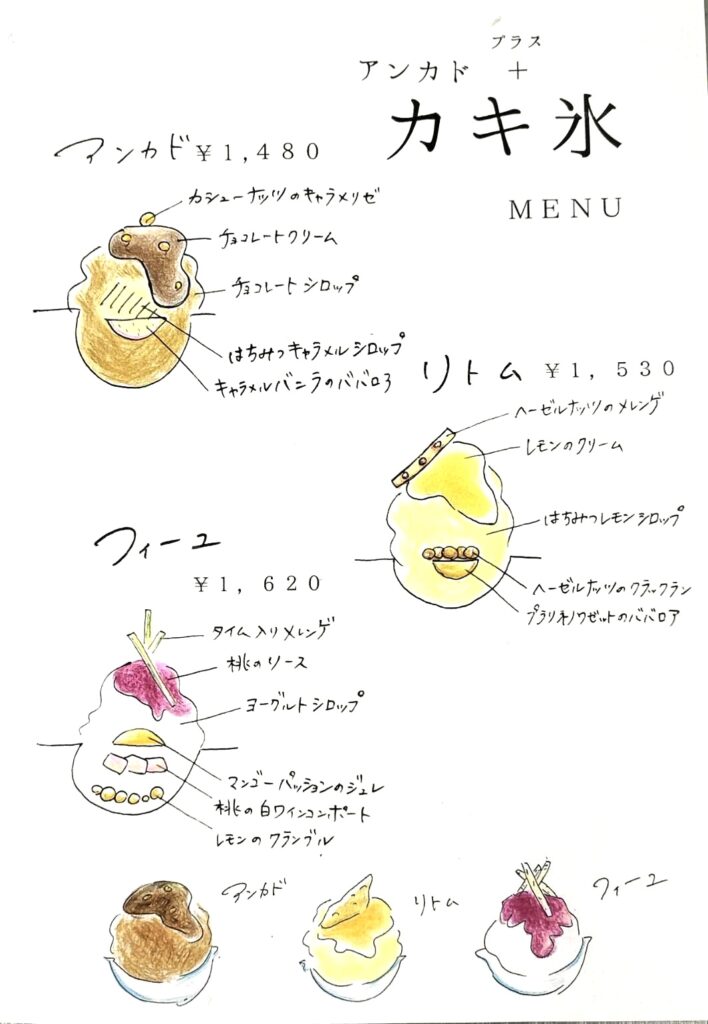 プラス
アンカド +
カキ氷
MENU
アンカド ¥1,480
カシューナッツのキャラメリゼ
チョコレートクリーム
チョコレートシロップ
はちみつキャラメルシロップ
キャラメルバニラのババロア
リトム ¥1,530
ヘーゼルナッツのメレンゲ
レモンのクリーム
はちみつレモンシロップ
ヘーゼルナッツのクラックラン
プラリネノワゼットのババロア
フィーユ
¥1,620
タイム入りメレンゲ
桃のソース
ヨーグルトシロップ
マンゴーパッションのジュレ
桃の白ワインコンポート
レモンのクランブル
アンカド
リトム
フィーユ